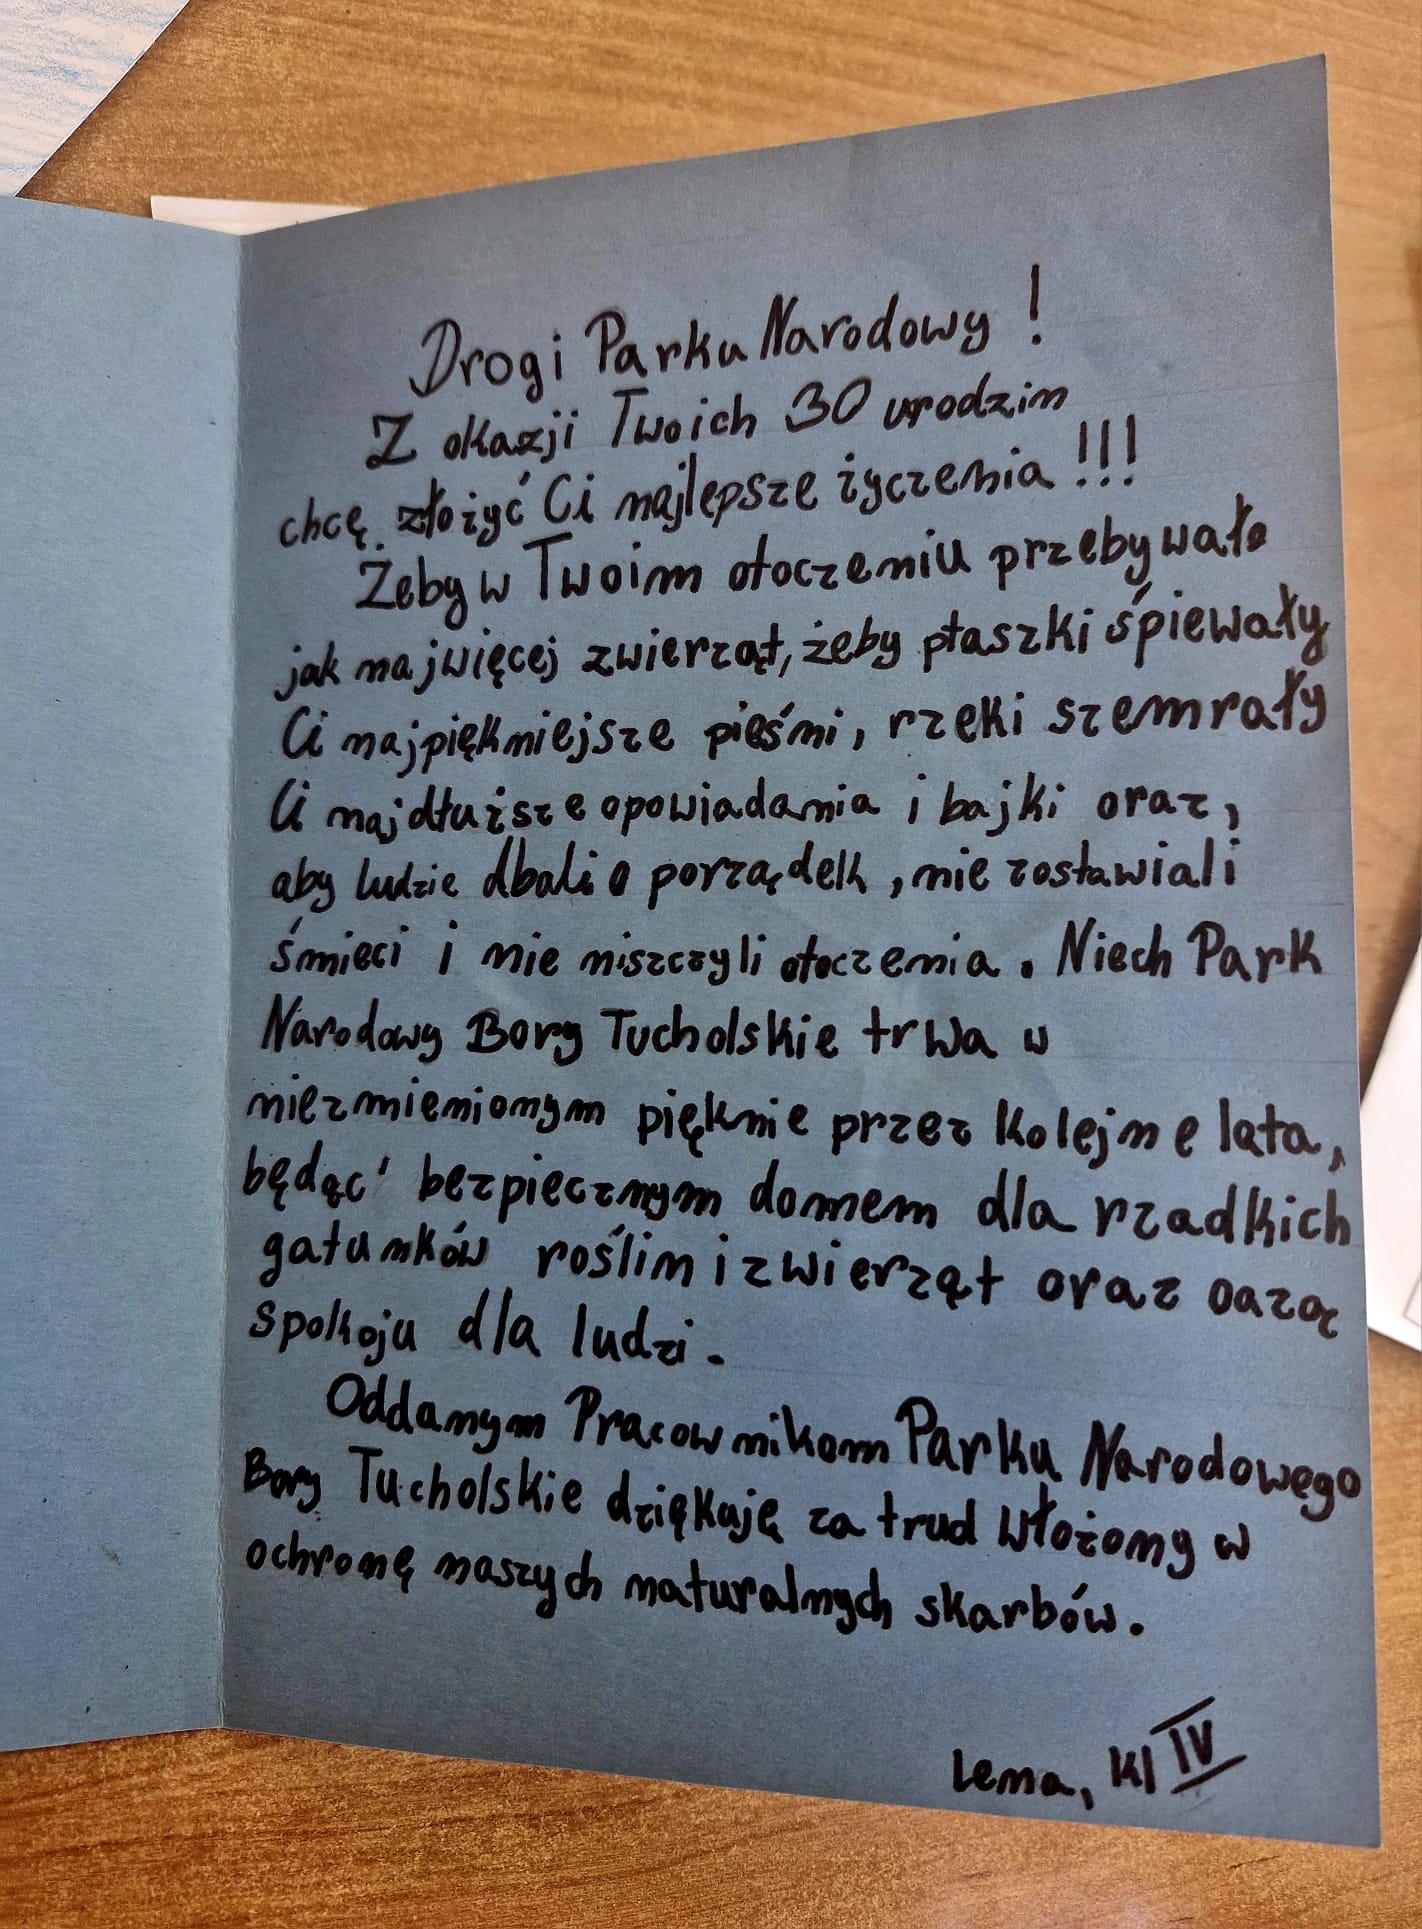 Drogi Parku Narodowy !
Z okazji Twoich 30 urodzin
chcę złożyć Ci najlepsze życzenia !!!
Żeby w Twoim otoczeniu przebywało
jak najwięcej zwierząt, żeby ptaszki śpiewały
Ci najpiękniejsze pieśni, rzeki szemrały
Ci najdłuższe opowiadania i bajki oraz,
aby ludzie dbali o porządek, nie zostawiali
śmieci i nie niszczyli otoczenia. Niech Park
Narodowy Bory Tucholskie trwa w
niezmienionym pięknie przez kolejne lata,
będąc bezpiecznym domem dla rzadkich
gatunków roślin i zwierząt oraz oazą
spokoju dla ludzi.
Oddanym Pracownikom Parku Narodowego
Bory Tucholskie dziękuję za trud włożony w
ochronę naszych naturalnych skarbów.
Lena, kl IV